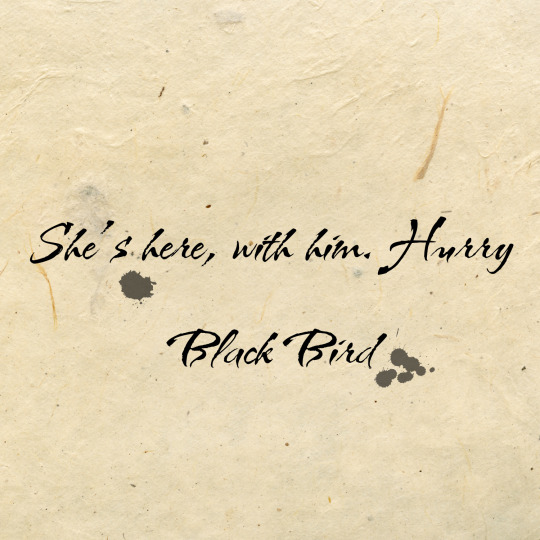 She's here, with him. Hurry
Black Bird